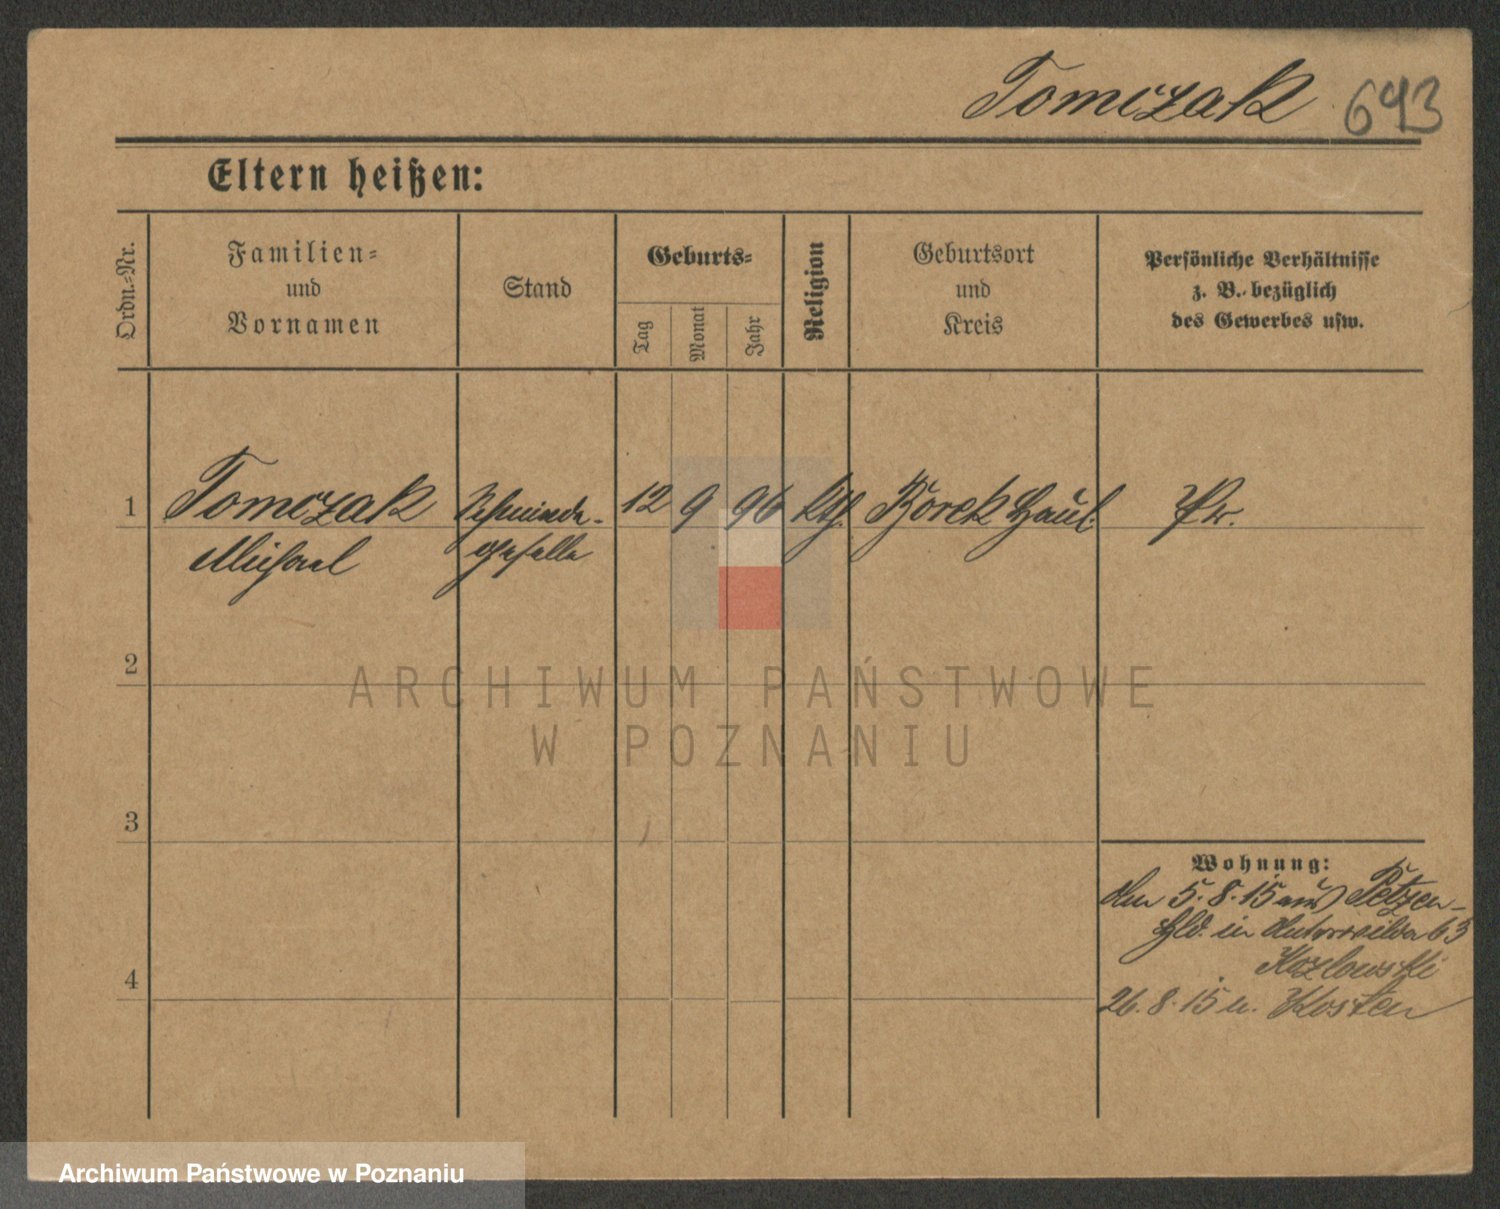 Tomczak 693
Eltern heißen:
Ordn.-Nr.
Familien-
und
Vornamen
Stand
Geburts-
Tag
Monat
Jahr
Religion
Geburtsort
und
Kreis
Persönliche Verhältnisse
z. B. bezüglich
des Gewerbes usw.
1 Tomczak Schmiede- 12 9 96 kth. Borek Haul. Pr.
Michael geselle
2
ARCHIWUM PAŃSTWOWE
W POZNANIU
3
Wohnung:
den 5.8.15 aus Petzen-
hld. in Unterwilda 63
Kozlowski
4
26.8.15 n. Kosten
Archiwum Państwowe w Poznaniu